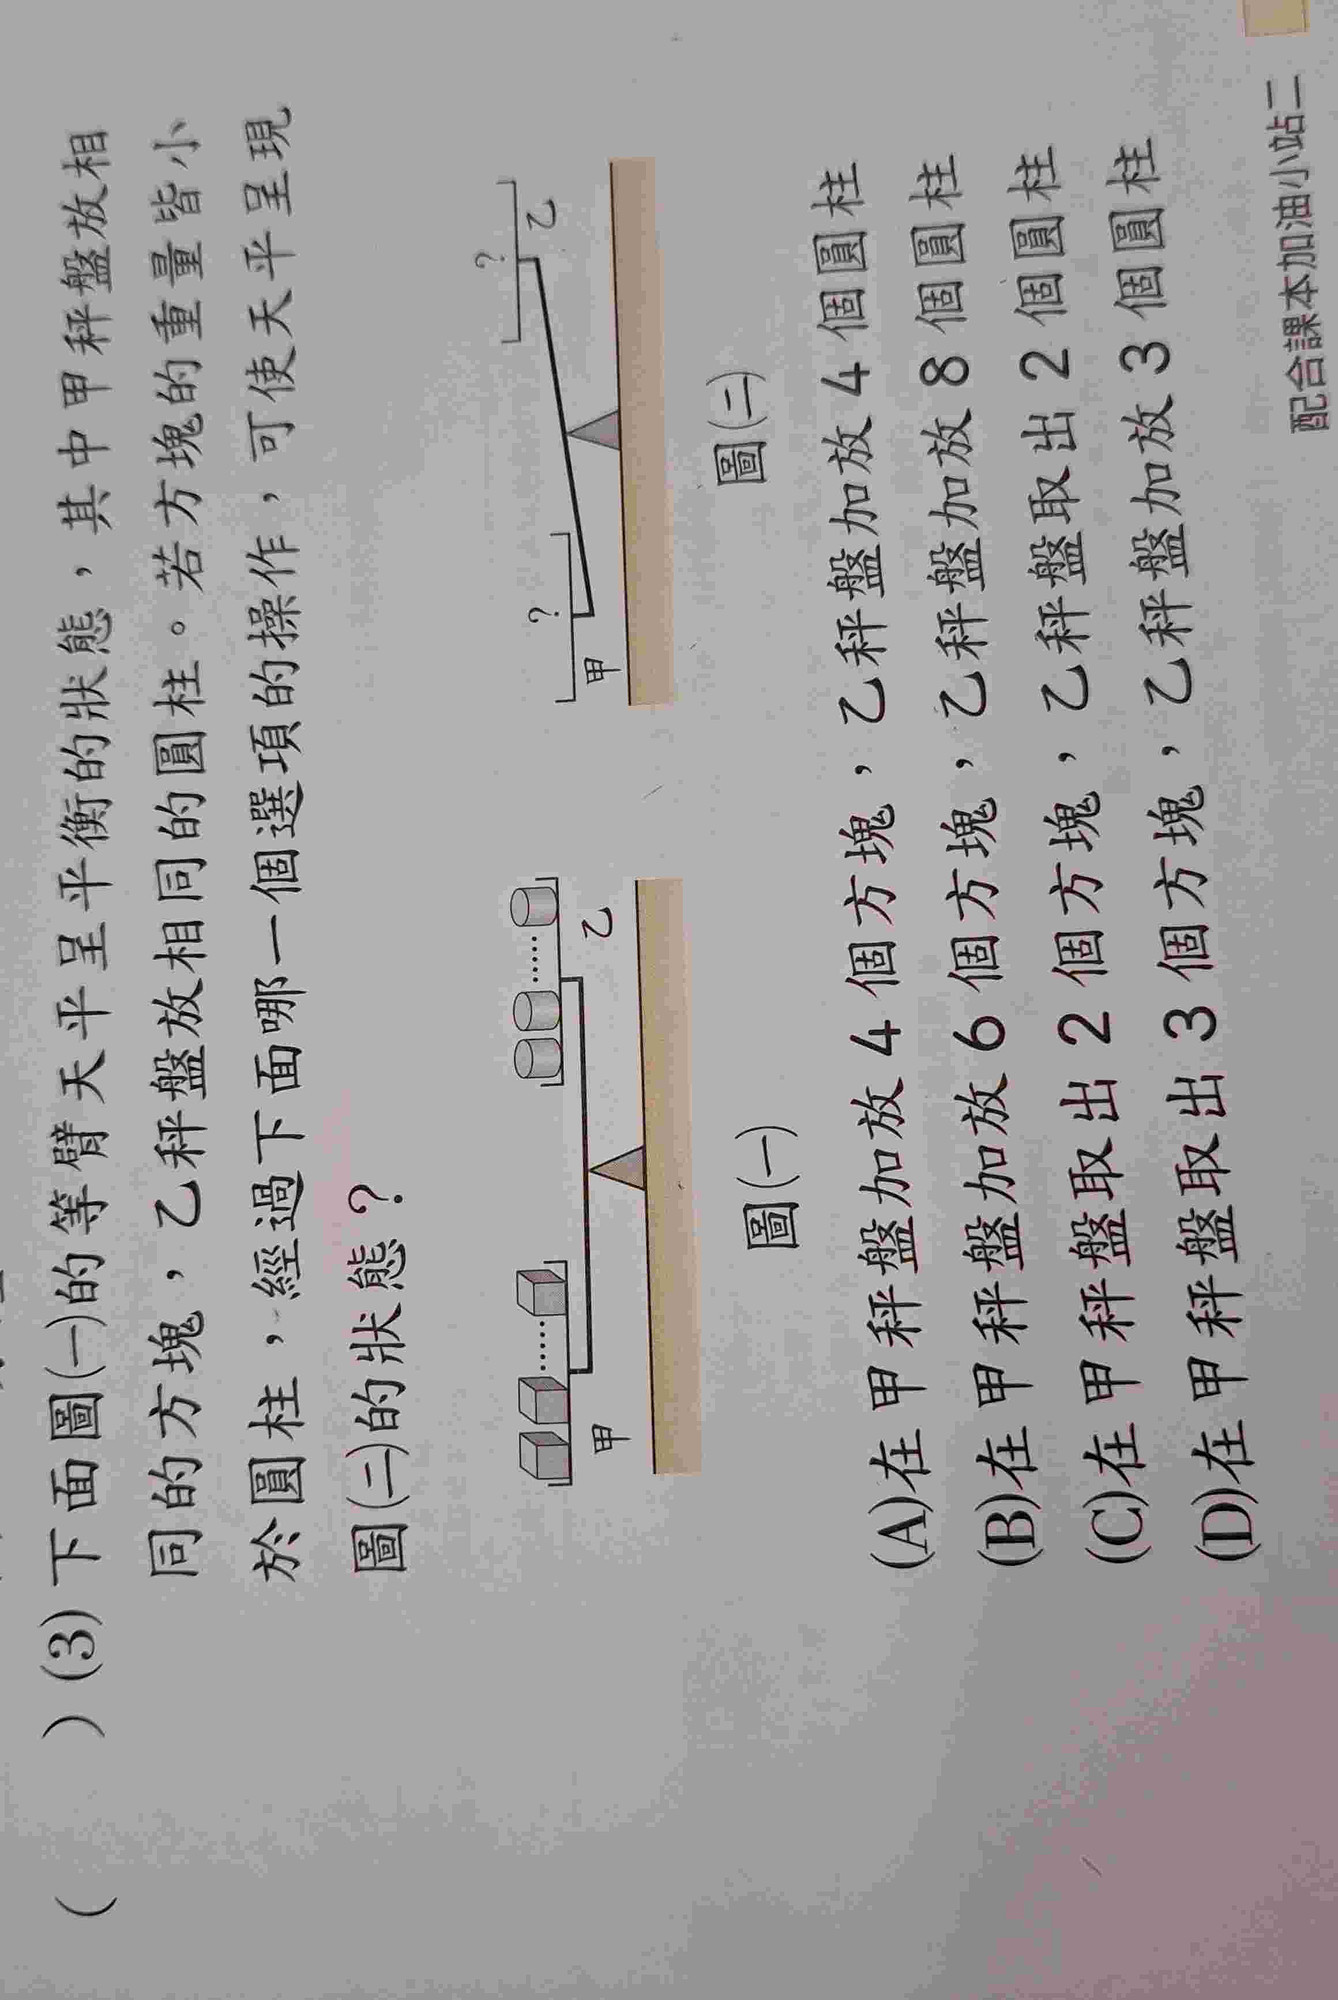 (　　)(3)下面圖(一)的等臂天平呈平衡的狀態，其中甲秤盤放相
同的方塊，乙秤盤放相同的圓柱。若方塊的重量皆小
於圓柱，經過下面哪一個選項的操作，可使天平呈現
圖(二)的狀態？
甲 …… …… 乙
? 甲 ? 乙
圖(一) 圖(二)
(A)在甲秤盤加放4個方塊，乙秤盤加放4個圓柱
(B)在甲秤盤加放6個方塊，乙秤盤加放8個圓柱
(C)在甲秤盤取出2個方塊，乙秤盤取出2個圓柱
(D)在甲秤盤取出3個方塊，乙秤盤加放3個圓柱
配合課本加油小站二